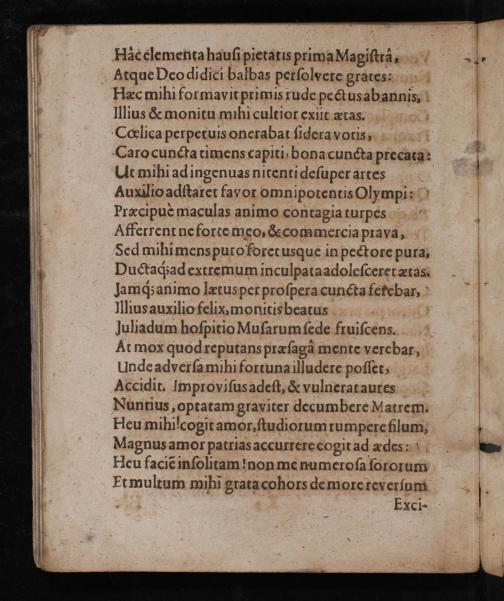 Hâc elementa hausi pietatis prima Magistrâ,
Atque Deo didici balbas persolvere grates:
Hæc mihi formavit primis rude pectus ab annis,
Illius & monitu mihi cultior exiit ætas.
Cœlica perpetuis onerabat sidera votis,
Caro cuncta timens capiti, bona cuncta precata:
Ut mihi ad ingenuas nitenti desuper artes
Auxilio adstaret favor omnipotentis Olympi:
Præcipuè maculas animo contagia turpes
Afferrent ne forte meo, & commercia prava,
Sed mihi mens puro foret usque in pectore pura,
Ductaq; ad extremum inculpata adolesceret ætas.
Jamq; animo lætus per prospera cuncta ferebar,
Illius auxilio felix, monitis beatus
Juliadum hospitio Musarum sede fruiscens.
At mox quod reputans præsagâ mente verebar,
Unde adversa mihi fortuna illudere posset,
Accidit. Improvisus adest, & vulnerat aures
Nuntius, optatam graviter decumbere Matrem.
Heu mihi! cogit amor, studiorum rumpere filum,
Magnus amor patrias accurrere cogit ad ædes:
Heu faciẽ insolitam! non me numerosa sororum
Et multum mihi grata cohors de more reversum
Exci-